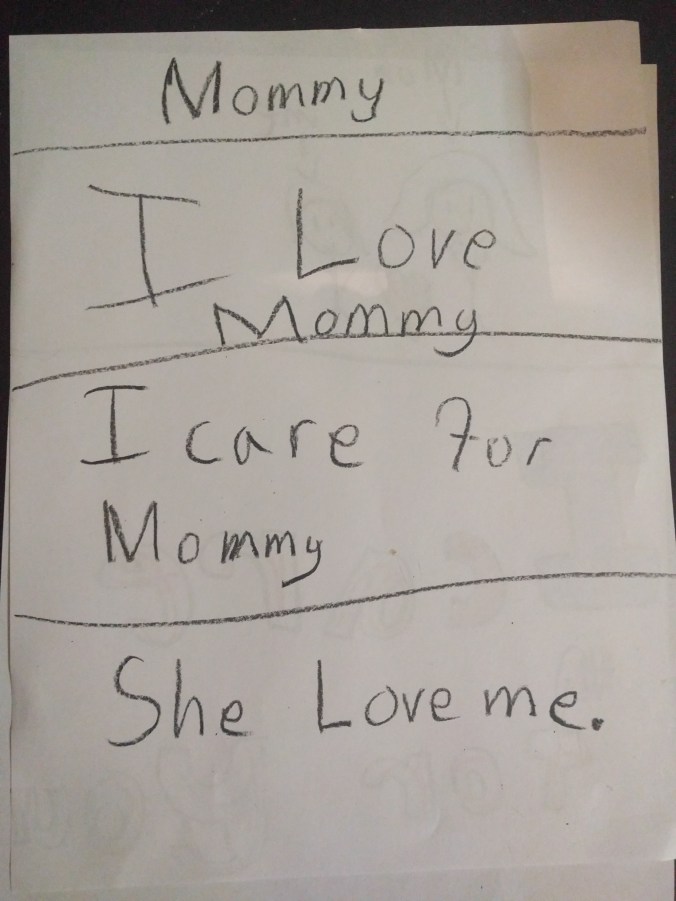 Mommy
I Love
Mommy
I care for
Mommy
She Love me.